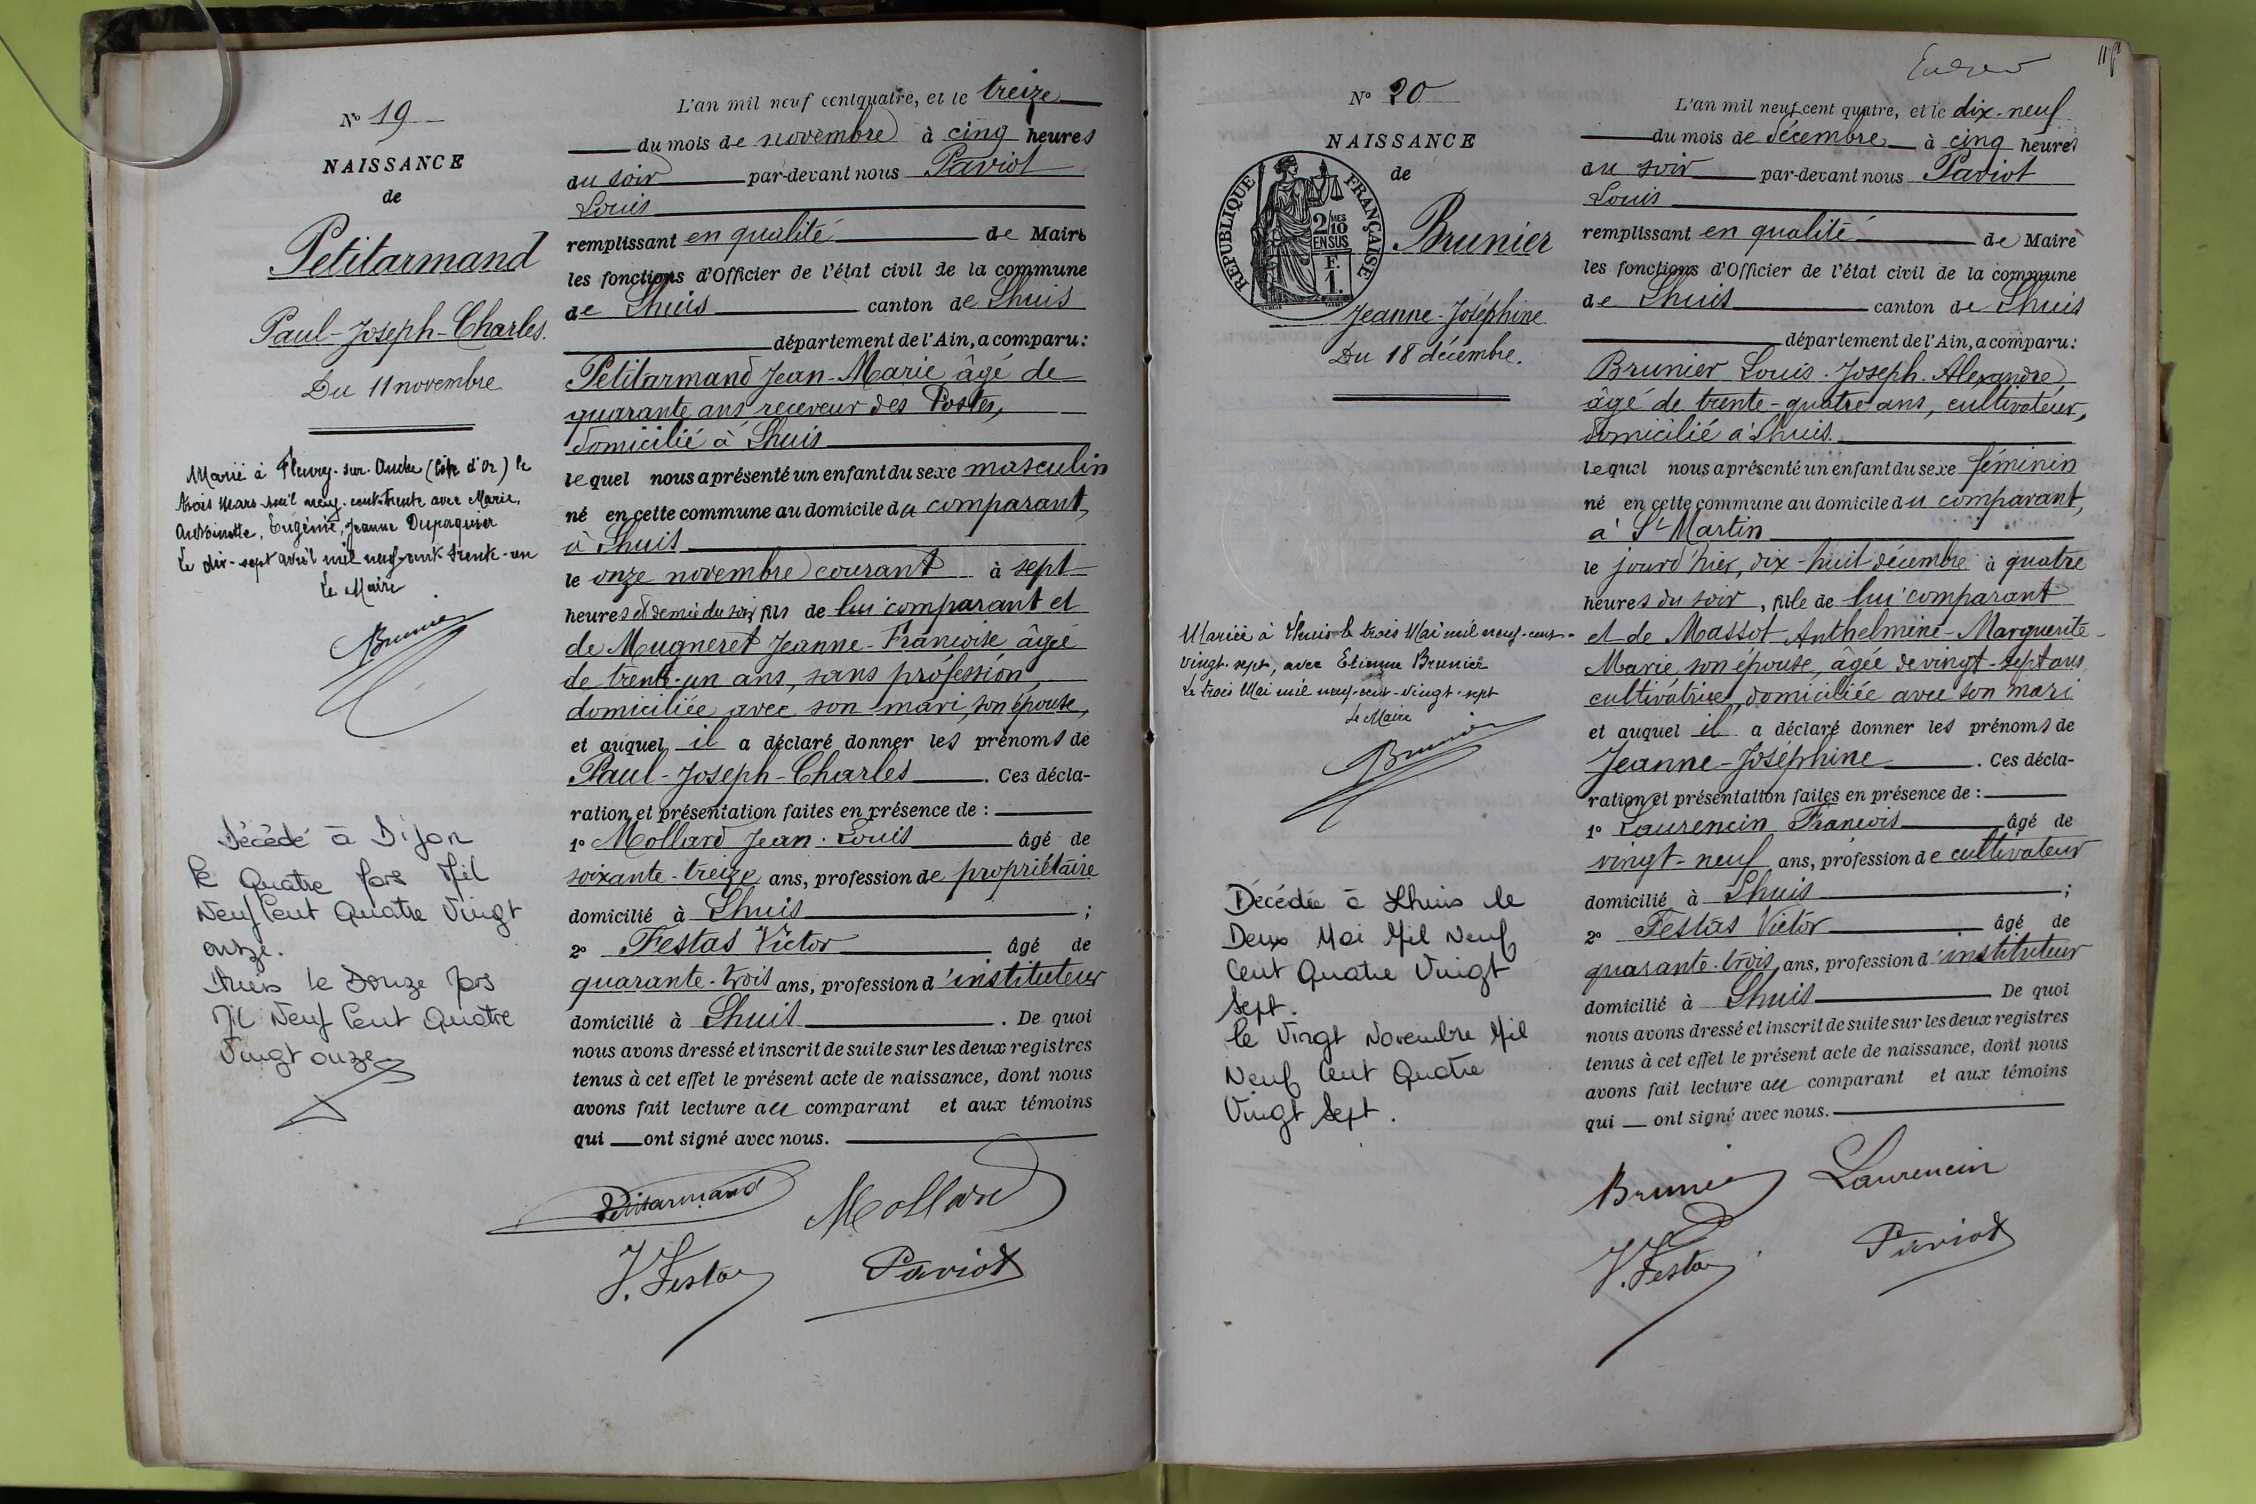 N° 19
NAISSANCE
de
Petitarmand
Paul-Joseph-Charles.
Du 11 novembre
Marié à Fleurey-sur-Ouche (Côte d'Or) le
trois Mars mil neuf-cent-trente avec Marie,
Antoinette, Eugénie, Jeanne Dupaquier
Le dix-sept avril mil neuf-cent trente-un
Le Maire
Brunier
Décédé à Dijon
le Quatre fév Mil
Neuf Cent Quatre Vingt
onze.
Lhuis le Douze fév
Mil Neuf Cent Quatre
Vingt onze
L'an mil neuf cent quatre, et le treize
du mois de novembre à cinq heures
du soir par-devant nous Paviot
Louis
remplissant en qualité de Maire
les fonctions d'Officier de l'état civil de la commune
de Lhuis canton de Lhuis
département de l'Ain, a comparu:
Petitarmand Jean-Marie âgé de
quarante ans receveur des Postes,
domicilié à Lhuis
lequel nous a présenté un enfant du sexe masculin
né en cette commune au domicile du comparant,
à Lhuis
le onze novembre courant à sept
heures et demie du soir, fils de lui comparant et
de Mugneret Jeanne-Françoise âgée
de trente-un ans, sans profession,
domiciliée avec son mari, son épouse,
et auquel il a déclaré donner les prénoms de
Paul-Joseph-Charles. Ces décla-
ration et présentation faites en présence de :
1° Mollard Jean-Louis âgé de
soixante-treize ans, profession de propriétaire
domicilié à Lhuis ;
2° Festas Victor âgé de
quarante-trois ans, profession d'instituteur
domicilié à Lhuis. De quoi
nous avons dressé et inscrit de suite sur les deux registres
tenus à cet effet le présent acte de naissance, dont nous
avons fait lecture au comparant et aux témoins
qui ont signé avec nous.
Petitarmand Mollard
V. Festas Paviot
N° 20
NAISSANCE
de
RÉPUBLIQUE FRANÇAISE
2/10 MES
EN SUS
F.
1.
Brunier
Jeanne-Joséphine
Du 18 décembre.
Mariée à Lhuis le trois Mai mil neuf-cent-
vingt-sept, avec Etienne Brunier
Le trois Mai mil neuf-cent-vingt-sept
Le Maire
Brunier
Décédée à Lhuis le
Deux Mai Mil Neuf
Cent Quatre Vingt
Sept.
le Vingt Novembre Mil
Neuf Cent Quatre
Vingt Sept.
L'an mil neuf cent quatre, et le dix-neuf
du mois de décembre à cinq heures
du soir par-devant nous Paviot
Louis
remplissant en qualité de Maire
les fonctions d'Officier de l'état civil de la commune
de Lhuis canton de Lhuis
département de l'Ain, a comparu:
Brunier Louis-Joseph-Alexandre,
âgé de trente-quatre ans, cultivateur,
domicilié à Lhuis.
lequel nous a présenté un enfant du sexe féminin
né en cette commune au domicile du comparant,
à St Martin
le jourd'hier, dix-huit décembre à quatre
heures du soir, fille de lui comparant
et de Massot Anthelmine-Marguerite-
Marie, son épouse, âgée de vingt-sept ans
cultivatrice, domiciliée avec son mari
et auquel il a déclaré donner les prénoms de
Jeanne-Joséphine. Ces décla-
ration et présentation faites en présence de :
1° Laurencin François âgé de
vingt-neuf ans, profession de cultivateur
domicilié à Lhuis ;
2° Festas Victor âgé de
quarante-trois ans, profession d'instituteur
domicilié à Lhuis De quoi
nous avons dressé et inscrit de suite sur les deux registres
tenus à cet effet le présent acte de naissance, dont nous
avons fait lecture au comparant et aux témoins
qui ont signé avec nous.
Brunier Laurencin
V. Festas Paviot